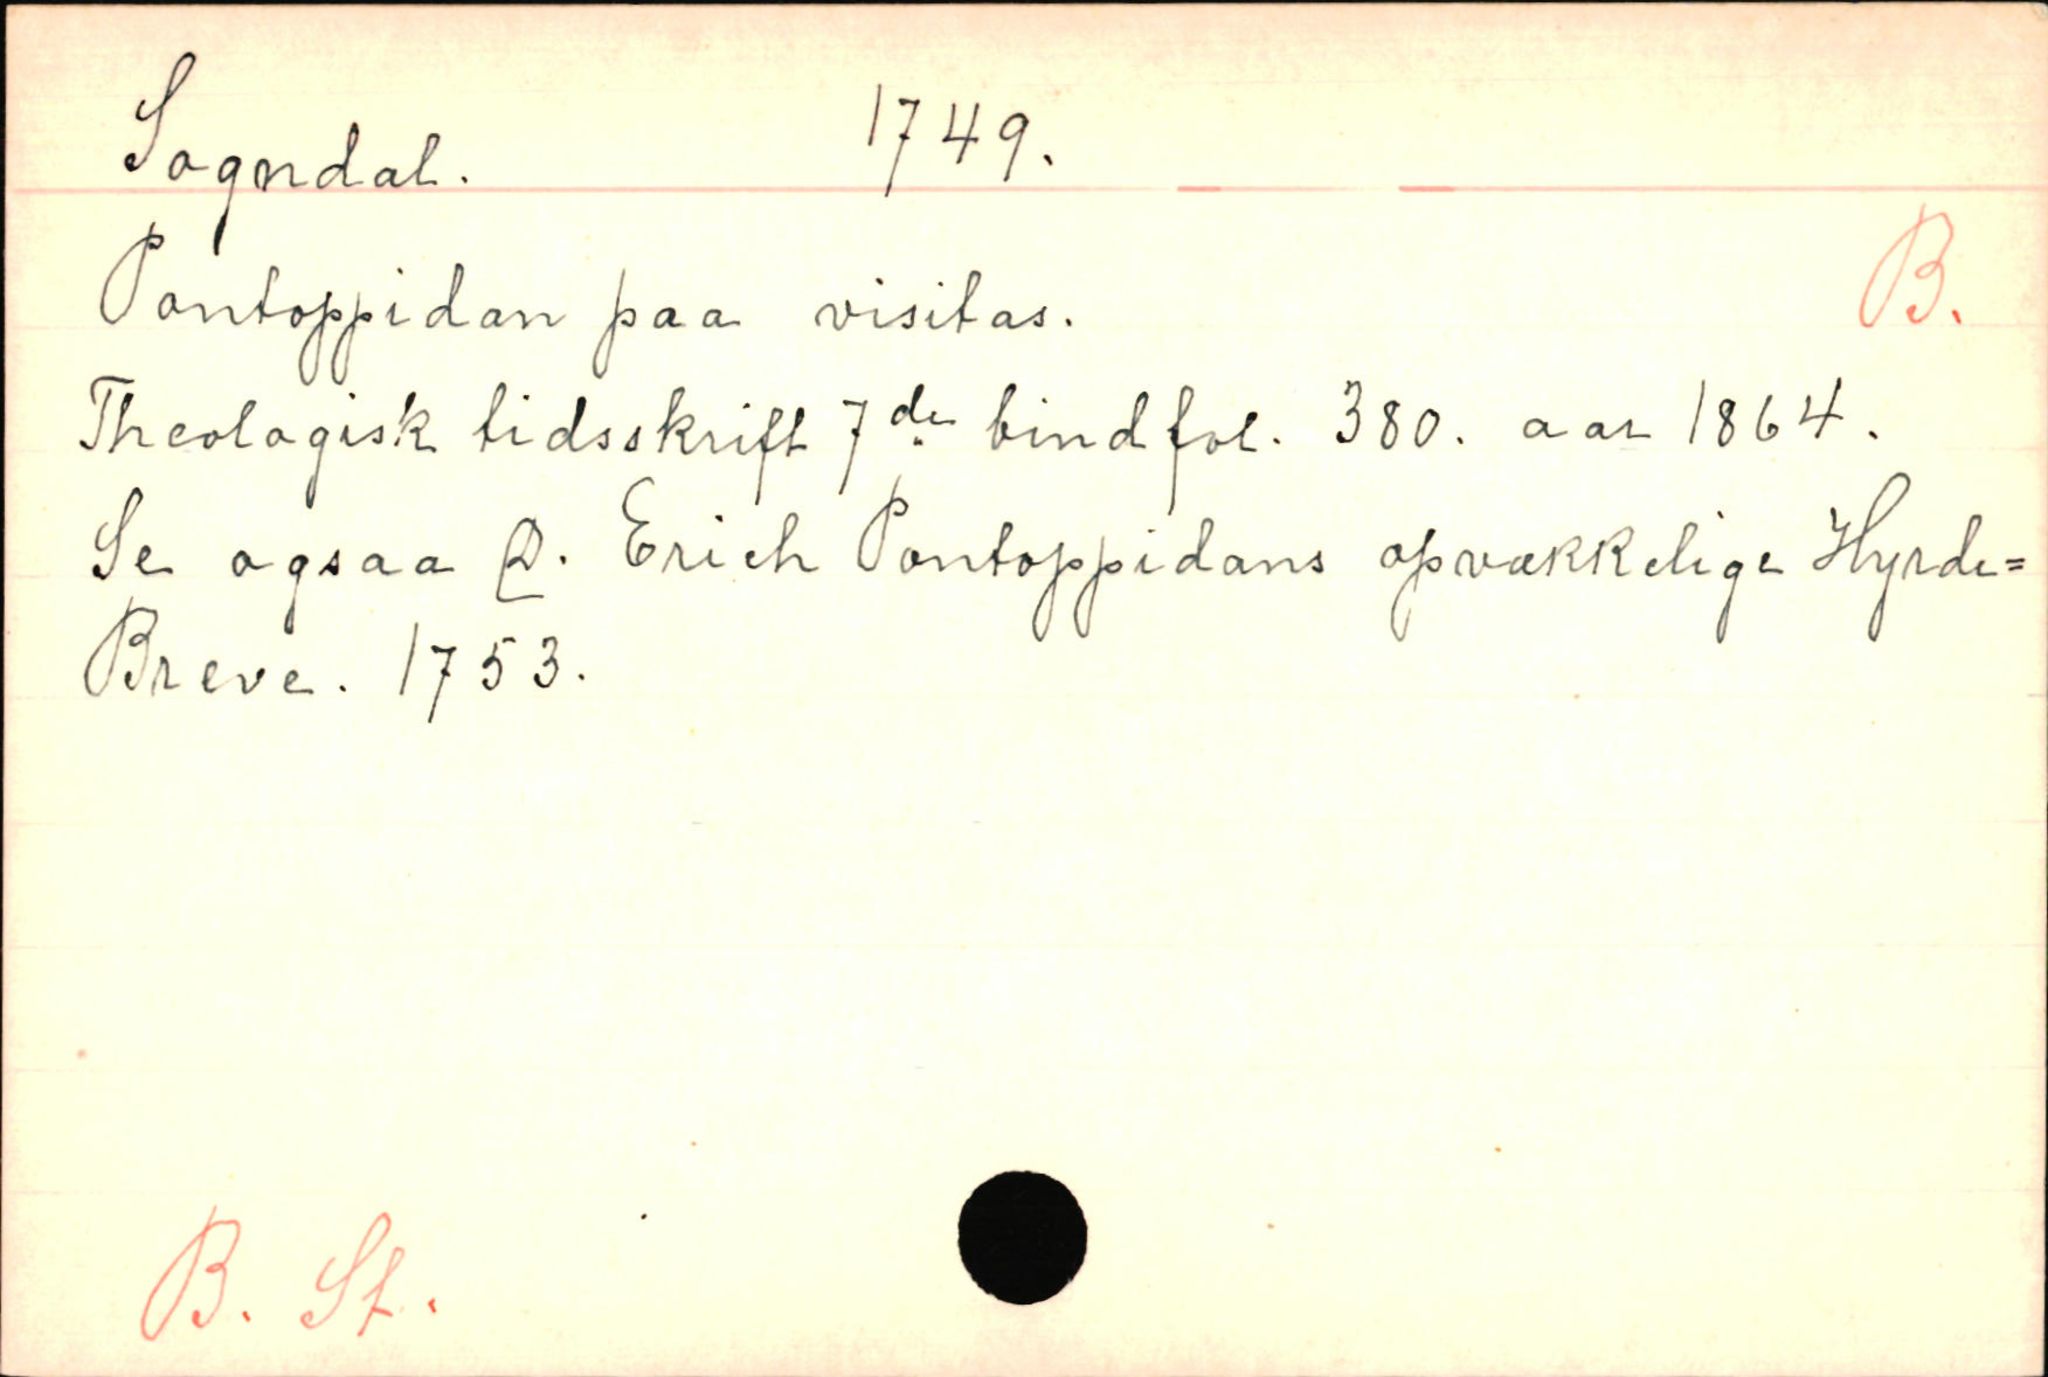 Sogndal. 1749.
B.
Pontoppidan paa visitas.
Theologisk tidsskrift 7de bind fol. 380. aar 1864.
Se ogsaa D. Erich Pontoppidans opvækkelige Hyrde=
Breve. 1753.
B. St.